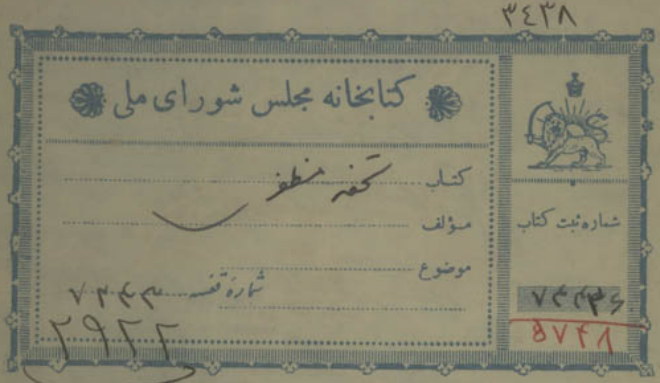 ۳۴۳۸
کتابخانه مجلس شورای ملی
کتاب تحفه مظفر
مؤلف
موضوع
شماره قفسه ۷۳۴۴۳
۲۹۲۲
شماره ثبت کتاب
۵۷۴۸